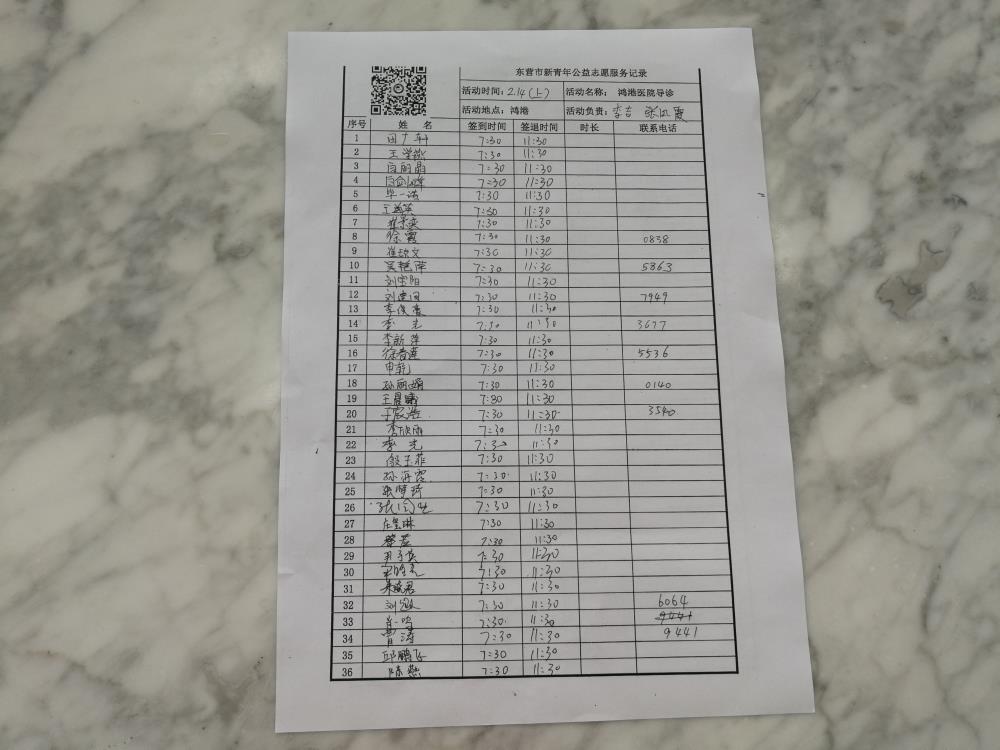 东营市新青年公益志愿服务记录
活动时间：2.14（上） 活动名称： 鸿港医院导诊
活动地点：鸿港 活动负责：李吉
序号 姓 名 签到时间 签退时间 时长 联系电话
1 7:30 11:30
2 王学燕 7:30 11:30
3 闫丽晶 7:30 11:30
4 7:30 11:30
5 毕一诺 7:30 11:30
6 7:30 11:30
7 7:30 11:30
8 徐霞 7:30 11:30 0838
9 崔琼文 7:30 11:30
10 吴艳萍 7:30 11:30 5863
11 刘宗阳 7:30 11:30
12 刘建国 7:30 11:30 7949
13 李俊 7:30 11:30
14 李光 7:30 11:30 3677
15 李新萍 7:30 11:30
16 徐春莲 7:30 11:30 5536
17 申乾 7:30 11:30
18 孙丽娟 7:30 11:30 0140
19 王晨曦 7:30 11:30
20 7:30 11:30 3540
21 李欣雨 7:30 11:30
22 李光 7:30 11:30
23 殷玉菲 7:30 11:30
24 孙海霞 7:30 11:30
25 张梦琦 7:30 11:30
26 7:30 11:30
27 庄玺琳 7:30 11:30
28 7:30 11:30
29 7:30 11:30
30 7:30 11:30
31 朱晓君 7:30 11:30
32 刘 7:30 11:30 6064
33 7:30 11:30 9441
34 曹涛 7:30 11:30 9441
35 邱鹏飞 7:30 11:30
36 陈燕 7:30 11:30